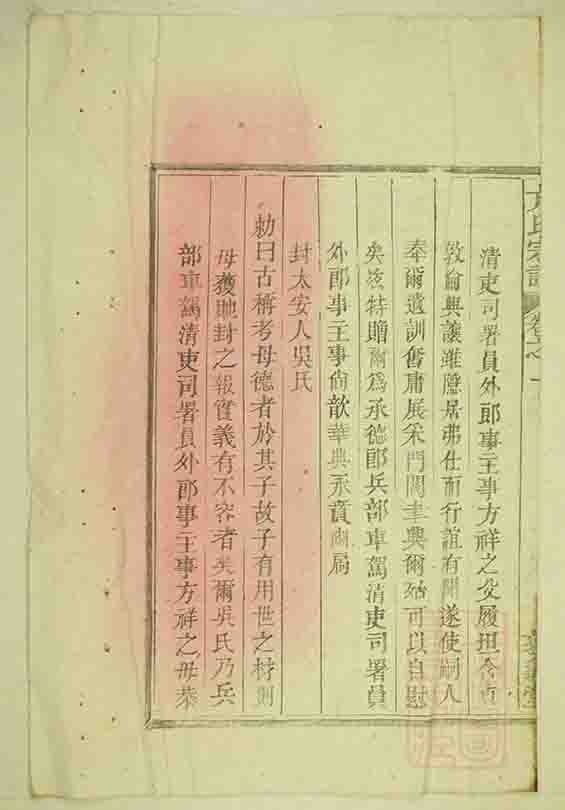 方氏宗譜 卷之一
清吏司署員外郎事主事方祥之父履坦含貞
敦倫興讓雖隱居弗仕而行誼有聞遂使嗣人
奉爾遺訓奮庸展采門閥聿興爾殆可以自慰
矣茲特贈爾為承德郎兵部車駕清吏司署員
外郎事主事尚歆華典永賁幽扃
封太安人吳氏
勅曰古稱考母德者於其子故子有用世之材則
母獲貤封之報實義有不容者矣爾吳氏乃兵
部車駕清吏司署員外郎事主事方祥之母恭